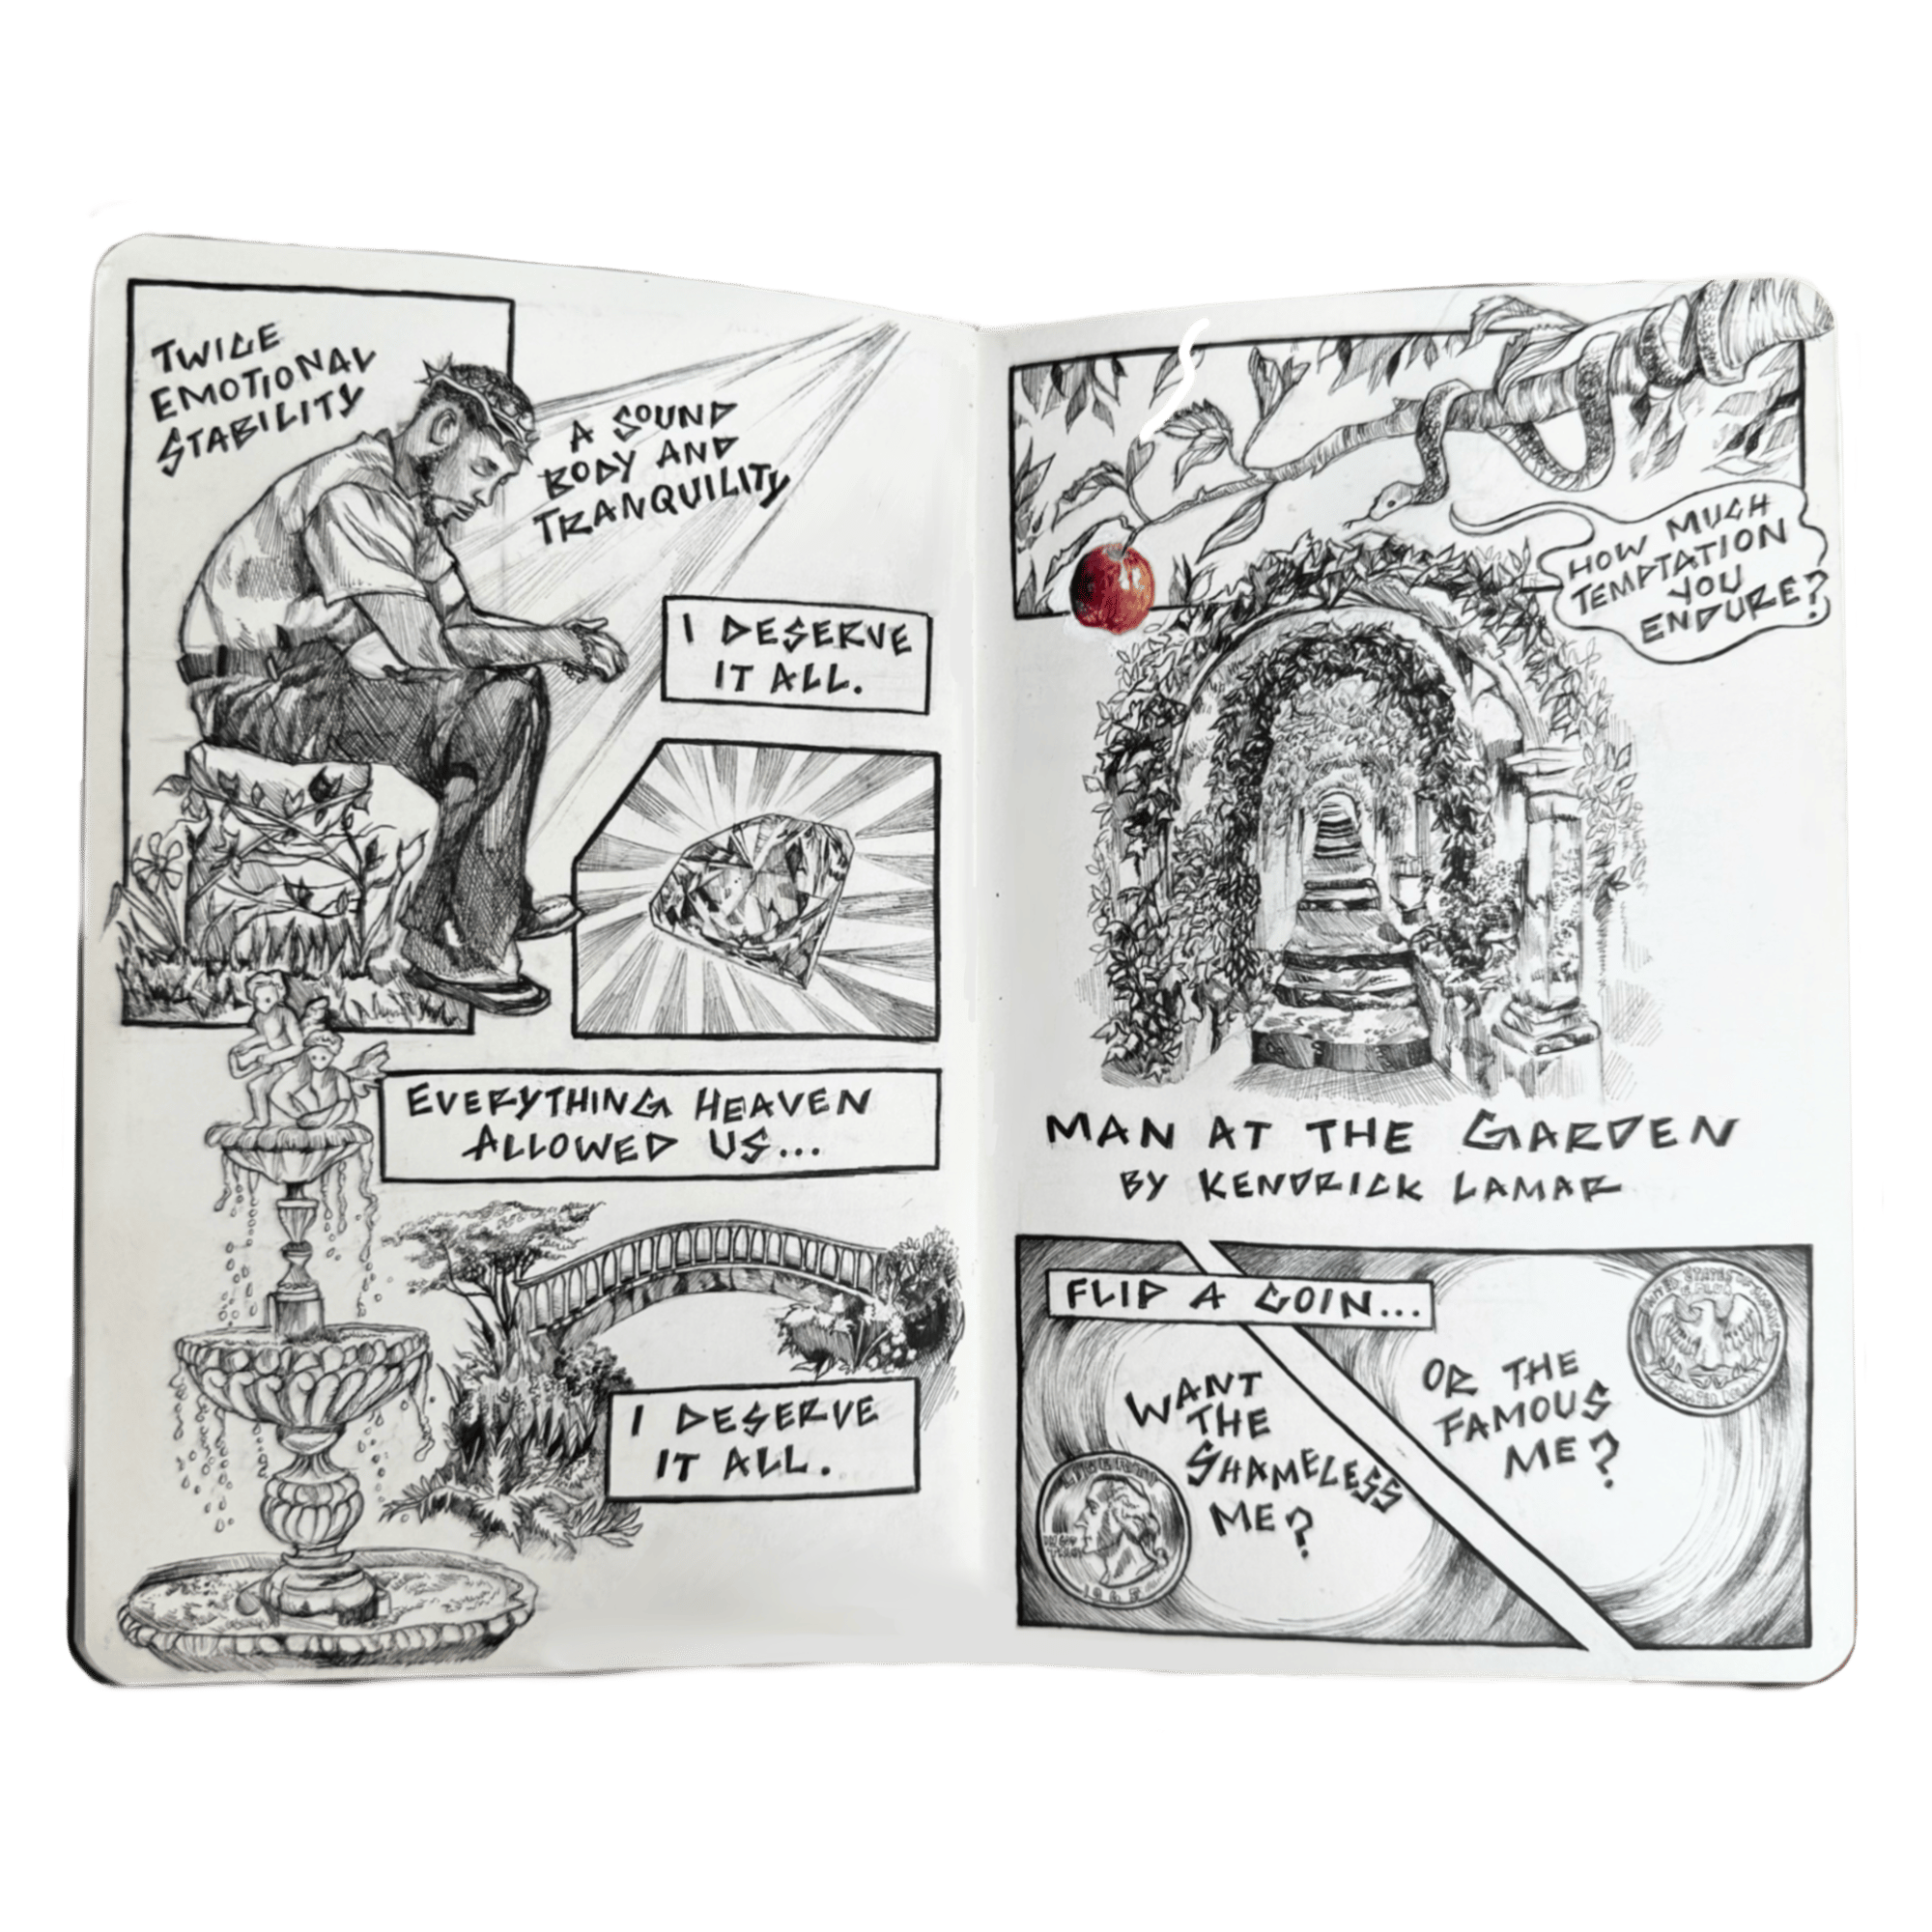 TWICE
EMOTIONAL
STABILITY
A SOUND
BODY AND
TRANQUILITY
I DESERVE
IT ALL.
EVERYTHING HEAVEN
ALLOWED US...
I DESERVE
IT ALL.
HOW MUCH
TEMPTATION
YOU
ENDURE?
MAN AT THE GARDEN
BY KENDRICK LAMAR
FLIP A COIN...
WANT
THE
SHAMELESS
ME?
LIBERTY
OR THE
FAMOUS
ME?